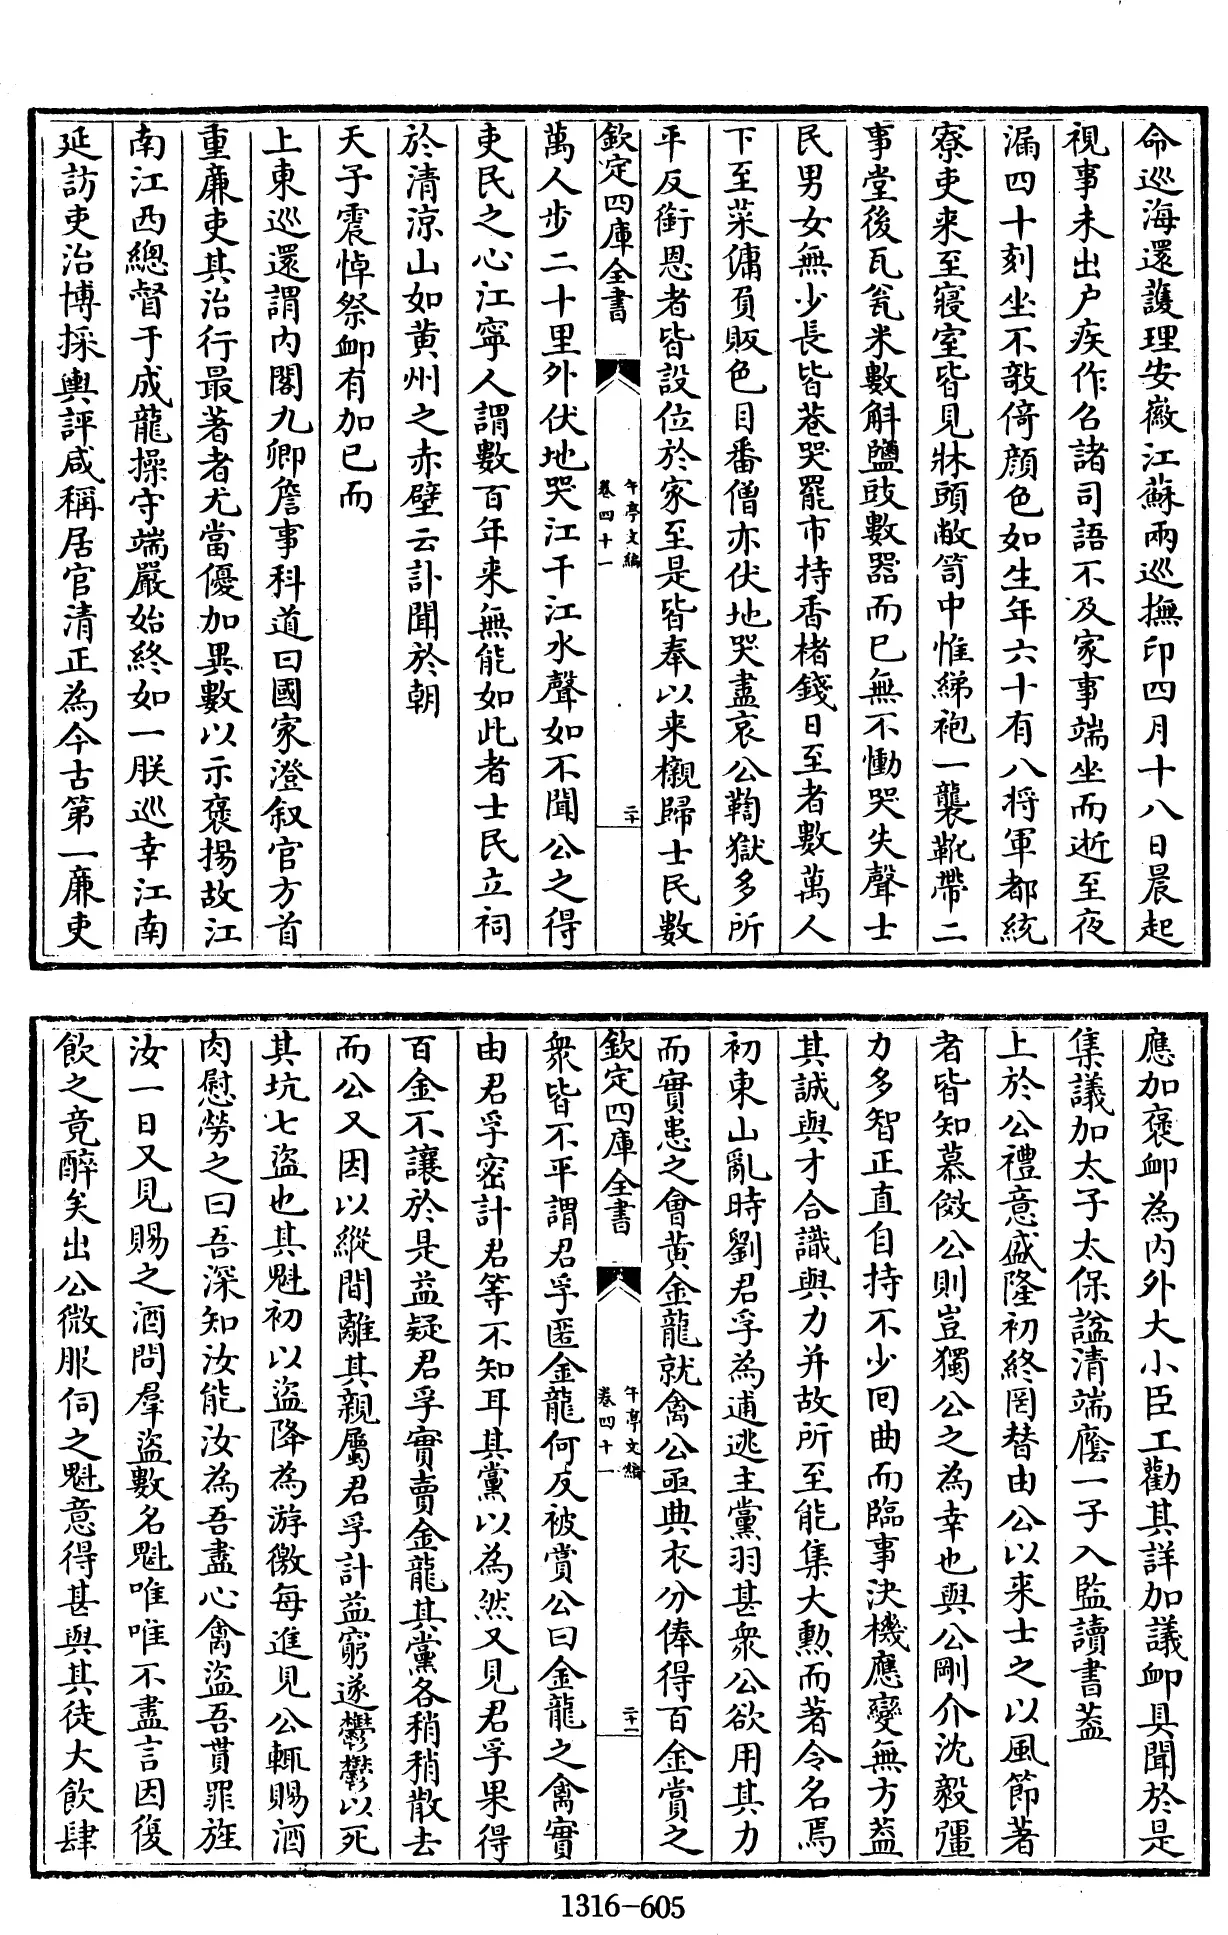 命巡海還護理安徽江蘇兩巡撫印四月十八日晨起
視事未出户疾作召諸司語不及家事端坐而逝至夜
漏四十刻坐不敧倚顔色如生年六十有八將軍都統
寮吏来至寢室皆見牀頭敝笥中惟綈袍一襲靴帶二
事堂後瓦瓮米數斛鹽豉數器而已無不慟哭失聲士
民男女無少長皆巷哭罷市持香楮錢日至者數萬人
下至菜傭負販色目番僧亦伏地哭盡哀公鞫獄多所
平反銜恩者皆設位於家至是皆奉以来櫬歸士民數
欽定四庫全書
午亭文編
卷四十一
二十
萬人步二十里外伏地哭江干江水聲如不聞公之得
吏民之心江寧人謂數百年来無能如此者士民立祠
於清涼山如黄州之赤壁云訃聞於朝
天子震悼祭卹有加已而
上東巡還謂内閣九卿詹事科道曰國家澄叙官方首
重廉吏其治行最著者尤當優加異數以示褒揚故江
南江西總督于成龍操守端嚴始終如一朕巡幸江南
延訪吏治博採輿評咸稱居官清正為今古第一廉吏
應加褒卹為内外大小臣工勸其詳加議卹具聞於是
集議加太子太保諡清端廕一子入監讀書葢
上於公禮意盛隆初終罔替由公以来士之以風節著
者皆知慕傚公則豈獨公之為幸也與公剛介沈毅彊
力多智正直自持不少囘曲而臨事決機應變無方葢
其誠與才合識與力并故所至能集大勲而著令名焉
初東山亂時劉君孚為逋逃主黨羽甚衆公欲用其力
而實患之會黄金龍就禽公亟典衣分俸得百金賞之
欽定四庫全書
午亭文編
卷四十一
二十一
衆皆不平謂君孚匿金龍何反被賞公曰金龍之禽實
由君孚密計君等不知耳其黨以為然又見君孚果得
百金不讓於是益疑君孚實賣金龍其黨各稍稍散去
而公又因以縱間離其親屬君孚計益窮遂鬱鬱以死
其坑七盜也其魁初以盜降為游徼每進見公輒賜酒
肉慰勞之曰吾深知汝能汝為吾盡心禽盜吾貰罪旌
汝一日又見賜之酒問羣盜數名魁唯唯不盡言因復
飲之竟醉矣出公微服伺之魁意得甚與其徒大飲肆
1316-605